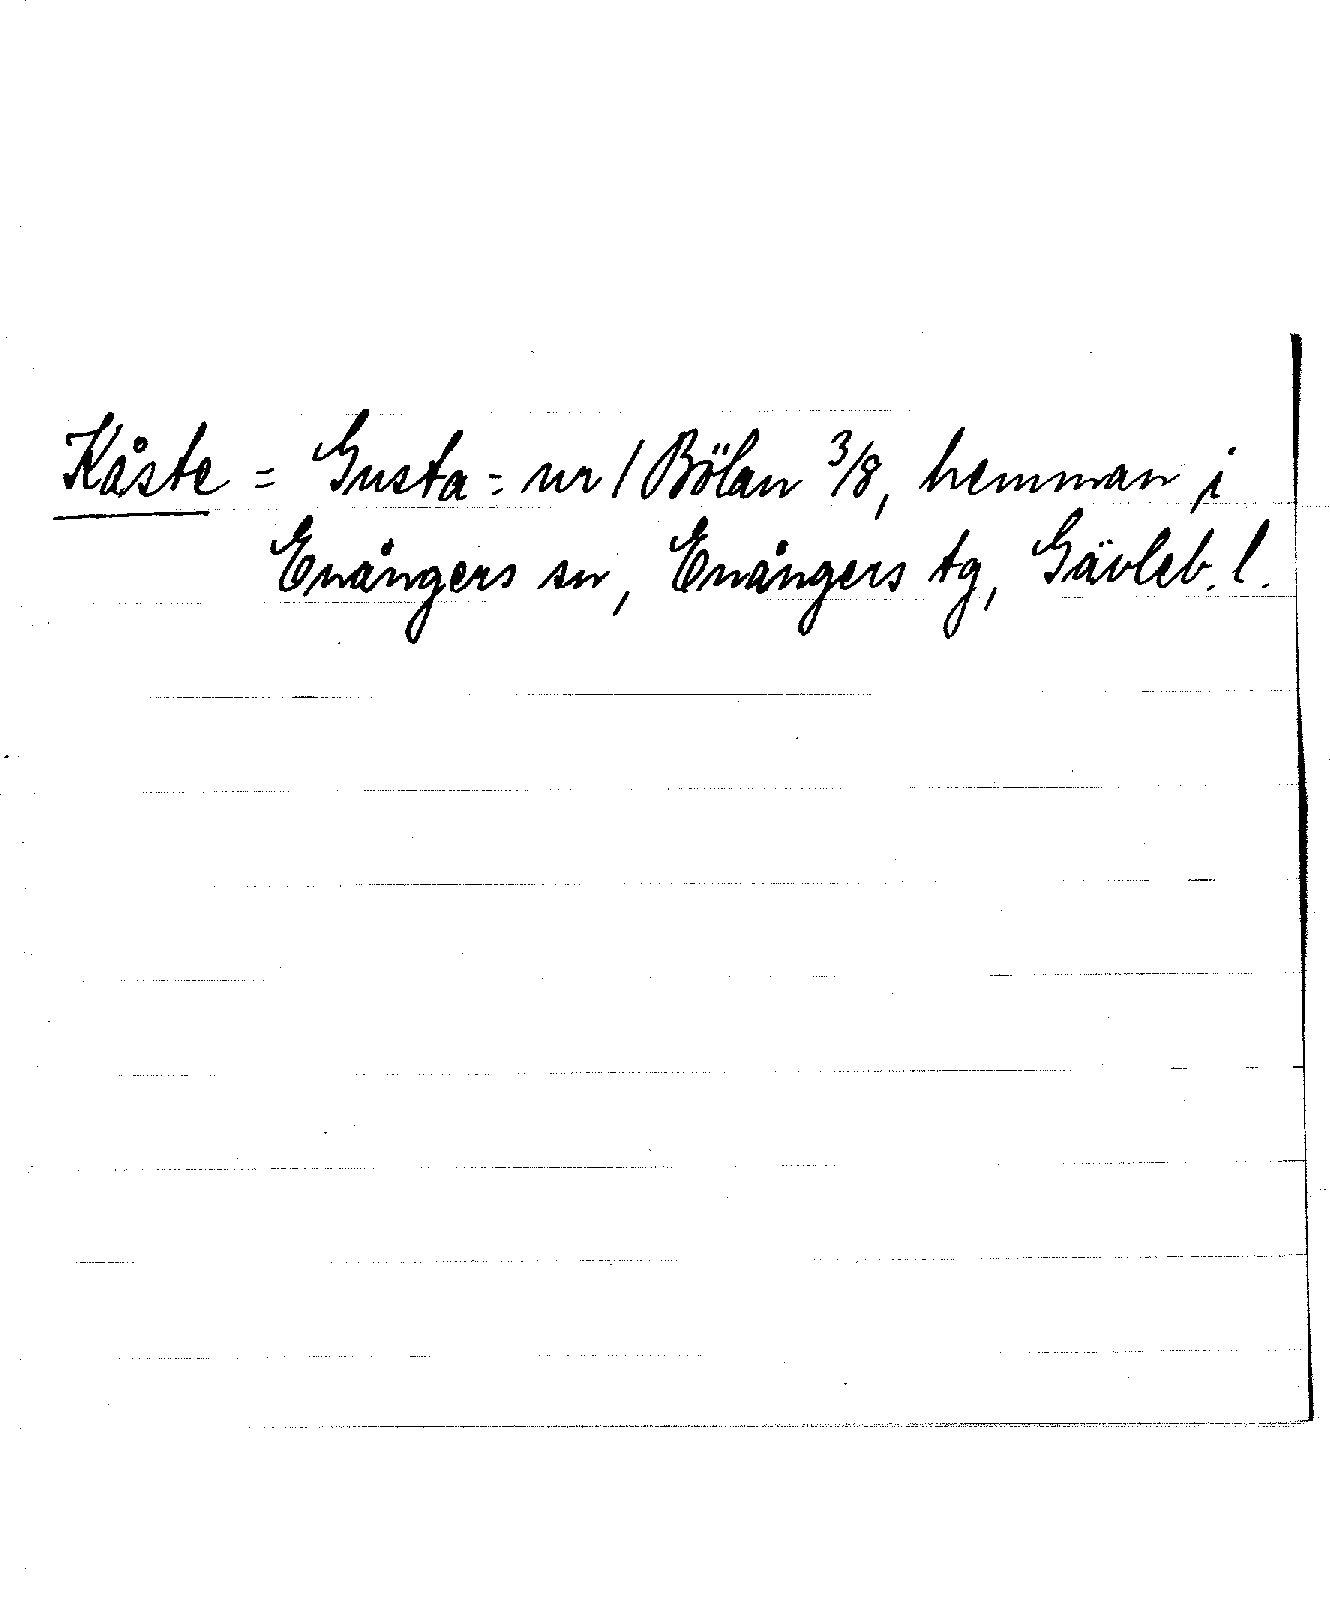 Kåste = Gusta = nr 1 Bölan 3/8, hemman i
Enångers sn, Enångers tg, Gävleb. l.